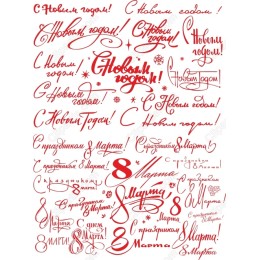 С Новым годом!
С Новым годом!
С Новым годом!
С Новым годом!
С Новым годом!
С Новым годом!
С Новым годом!
С Новым годом!
С Новым годом!
С Новым годом!
С Новым годом!
С Новым годом!
С Новым Годом!
С Новым годом!
С праздником 8 Марта!
С праздником 8 Марта!
С праздником 8 Марта!
С праздником
8 Марта!
8 Марта
С праздником
8 Марта!
8 Марта!
С праздником
8 Марта!
8 Марта!
С Днем
8 Марта!
8 Марта
С праздником
8 Марта!
8 Марта!